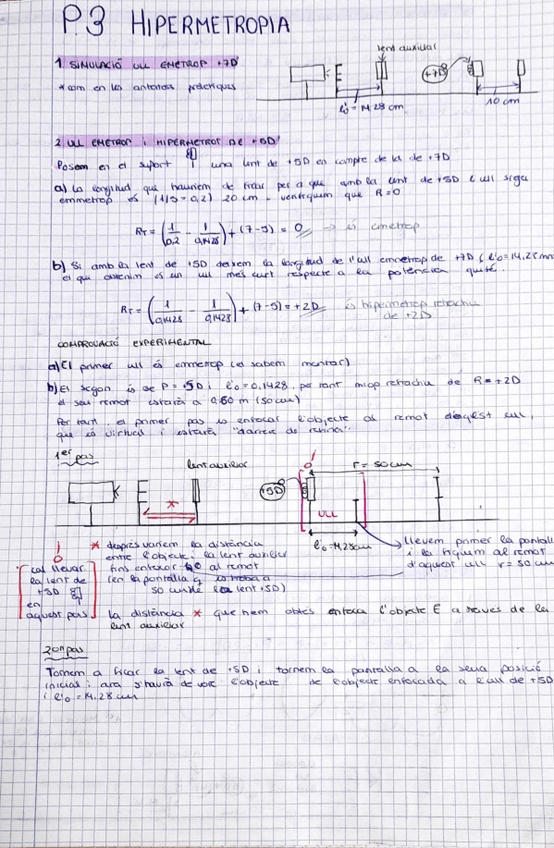 P.3 HIPERMETROPIA
1 SIMULACIÓ ULL EMÈTROP +7D
lent auxiliar
* com en les anteriors pràctiques
+7D
l'o = 14.28 cm
10 cm
2 ULL EMETROP i HIPERMETROP DE +5D
Posem en el suport una lent de +5D en compte de la de +7D
a) La longitud que hauríem de ficar per a que amb la lent de +5D l'ull siga
emmetrop és (1/5 = 0,2) 20 cm. verifiquem que R=0
RT = (1/0,2 - 1/0,1428) + (7-5) = 0 → és emetrop
b) Si amb la lent de +5D deixem la longitud de l'ull emmetrop de +7D (l'o=14.28mm
el que obtenim és un ull més curt respecte a la potència que té.
RT = (1/0,1428 - 1/0,1428) + (7-5) = +2D és hipermetrop refractiu
de +2D
COMPROVACIÓ EXPERIMENTAL
a) El primer ull és emmetrop (el sabem montar)
b) El segon és de P = +5D i l'o = 0,1428, per tant miop refractiu de R = +2D
el seu remot estarà a 0,50 m (50 cm)
Per tant, el primer pas és enfocar l'objecte al remot d'aquest ull,
que és virtual i estarà "darrere de retina".
1er pas
lent auxiliar
+5D
r = 50 cm
*
ULL
l'o = 14.28cm
* després variem la distància
entre l'objecte i la lent auxiliar
fins enfocar-lo al remot
(en la pantalla q
50 cm de la lent +5D)
llevem primer la pantalla
i la fiquem al remot
d'aquest ull r = 50 cm
cal llevar
la lent de
+5D
en
aquest pas
la distància * que hem obtés enfoca l'objecte E a través de la
lent auxiliar
2on pas
Tornem a ficar la lent de +5D i tornem la pantalla a la seua posició
inicial i ara s'haurà de veure l'objecte de l'objecte enfocada a l'ull de +5D
i l'o = 14.28 cm